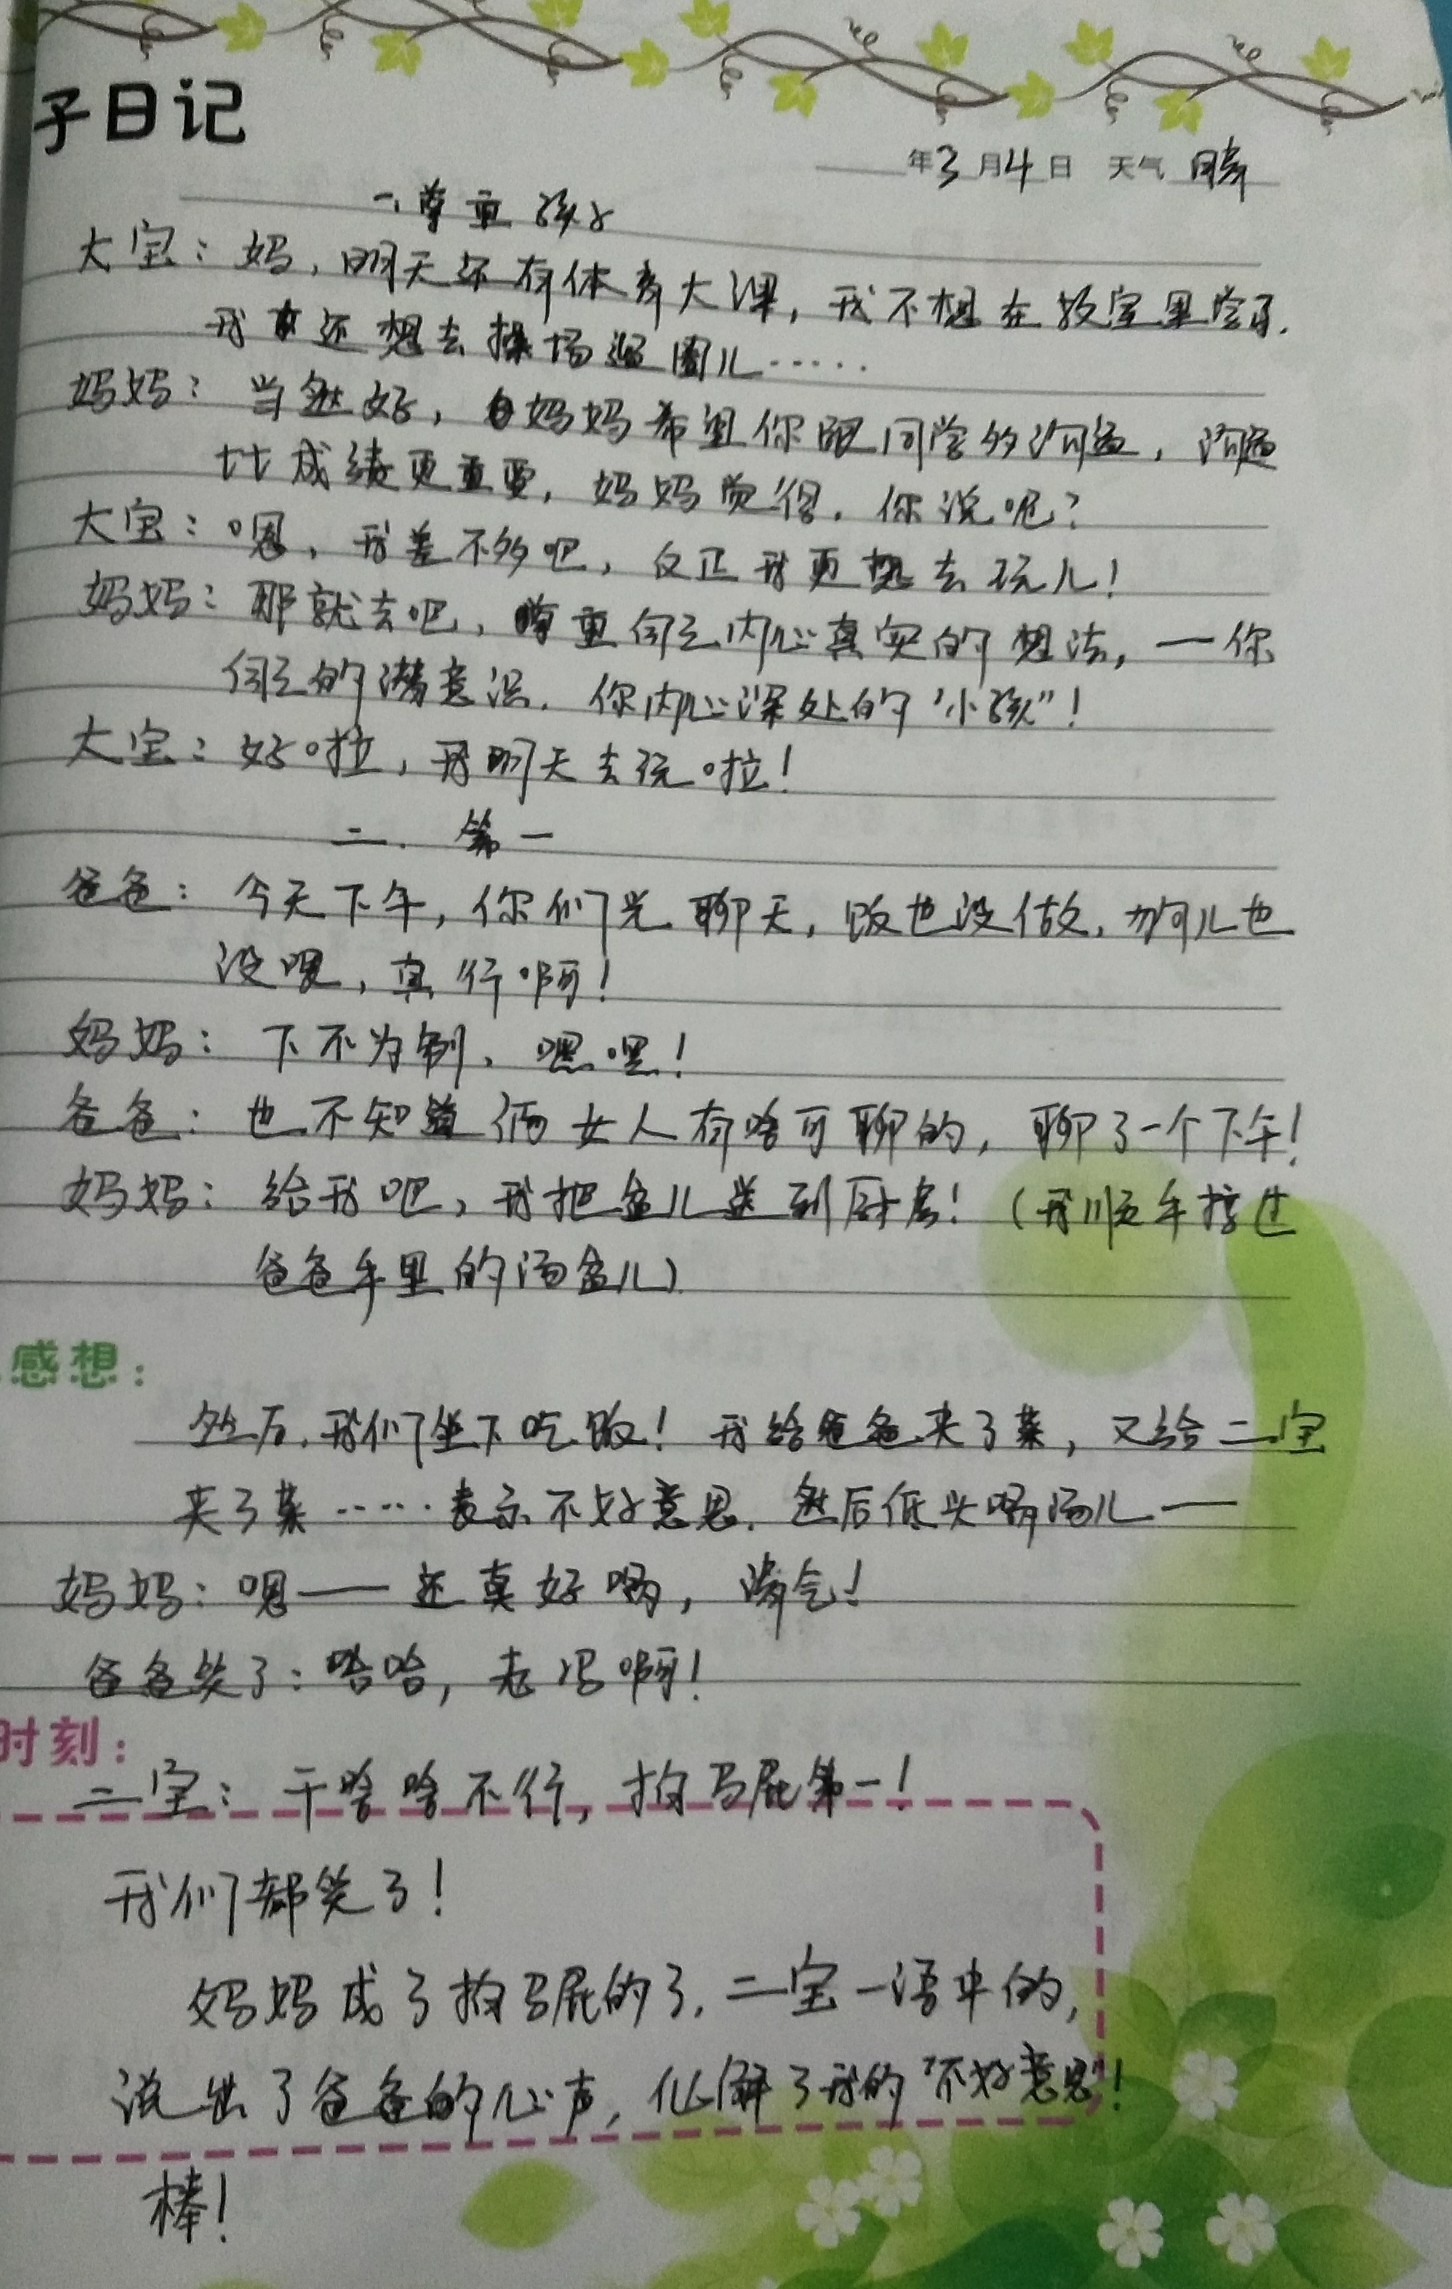 子日记
年3月4日 天气 晴
一、尊重孩子
大宝：妈，明天还有体育大课，我不想在教室里学了.
我还想去操场遛圈儿……
妈妈：当然好，妈妈希望你跟同学多沟通，沟通
比成绩更重要，妈妈觉得．你说呢？
大宝：嗯，我差不多吧，反正我更想去玩儿！
妈妈：那就去吧，尊重自己内心真实的想法，一你
自己的潜意识．你内心深处的“小孩”！
大宝：好啦，我明天去玩啦！
二．第一
爸爸：今天下午，你们光聊天，饭也没做，狗儿也
没喂，真行啊！
妈妈：下不为例、嘿嘿！
爸爸：也不知道俩女人有啥可聊的，聊了一个下午！
妈妈：给我吧，我把盆儿送到厨房！（我顺手接过
爸爸手里的汤盆儿）
感想：
然后，我们坐下吃饭！我给爸爸夹了菜，又给二宝
夹了菜……表示不好意思．然后低头喝汤儿——
妈妈：嗯——还真好喝，满气！
爸爸笑了：哈哈，老冯啊！
时刻：
二宝：干啥啥不行，拍马屁第一！
我们都笑了！
妈妈成了拍马屁的了．二宝一语中的，
说出了爸爸的心声，化解了我的“不好意思”！
棒！